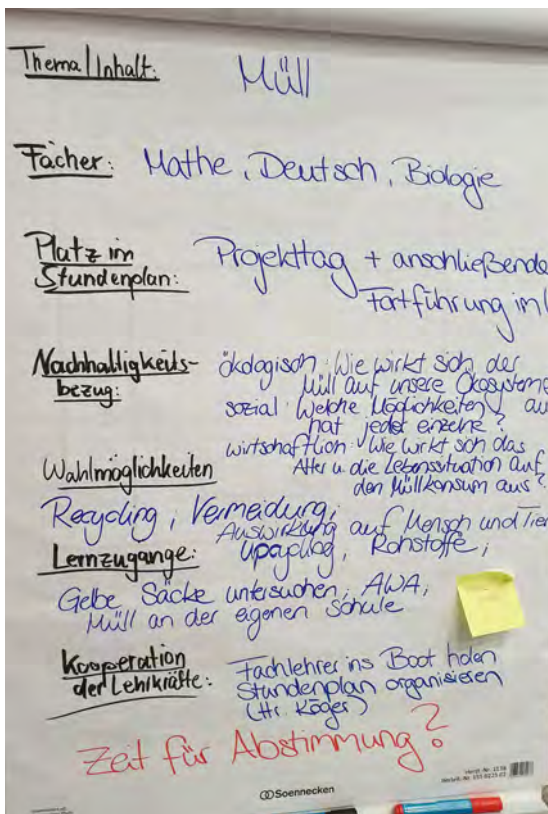 Thema/Inhalt: Müll
Fächer: Mathe, Deutsch, Biologie
Platz im Stundenplan: Projekttag + anschließende
Fortführung im
Nachhaltigkeits-
bezug:
ökologisch: Wie wirkt sich der
Müll auf unsere Ökosysteme
aus
sozial: Welche Möglichkeiten
hat jeder einzelne?
wirtschaftlich: Wie wirkt sich das
Alter u. die Lebenssituation auf
den Müllkonsum aus?
Wahlmöglichkeiten
Recycling, Vermeidung,
Auswirkung auf Mensch und Tier
Upcycling, Rohstoffe,
Lernzugänge:
Gelbe Säcke untersuchen, AWA,
Müll an der eigenen Schule
Kooperation
der Lehrkräfte:
Fachlehrer ins Boot holen
Stundenplan organisieren
(Hr. Köger)
Zeit für Abstimmung?
Soennecken